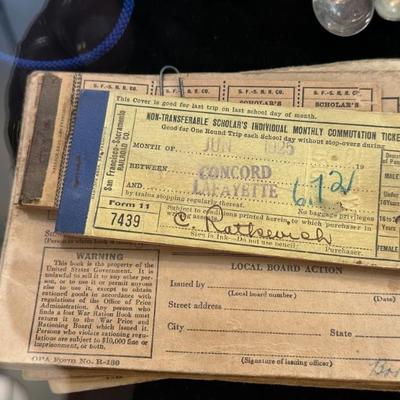 S.F.-S. R.R. CO.
S.F.-S. R.R. CO.
S.F.-S. R.R. CO.
SCHOLAR'S
SCHOLAR'S
This Cover is good for last trip on last school day of month.
San Francisco-Sacramento
RAILROAD CO.
NON-TRANSFERABLE SCHOLAR'S INDIVIDUAL MONTHLY COMMUTATION TICKE
Good for One Round Trip each School day without stop-overs during
MONTH OF JUN 19
BETWEEN CONCORD
AND LAFAYETTE
6.72
by trains stopping regularly thereat. No baggage privileges
Subject to conditions printed herein to which purchaser
Form 11
7439
Sign in Ink—Do not use pencil. Purchaser.
WARNING
This book is the property of the
United States Government. It is
unlawful to sell it to any other per-
son, or to use it or permit anyone
else to use it, except to obtain
rationed goods in accordance with
regulations of the Office of Price
Administration. Any person who
finds a lost War Ration Book must
return it to the War Price and
Rationing Board which issued it.
Persons who violate rationing regu-
lations are subject to $10,000 fine or
imprisonment, or both.
OPA Form No. R-130
LOCAL BOARD ACTION
Issued by
(Local board number) (Date)
Street address
City State
(Signature of issuing officer)